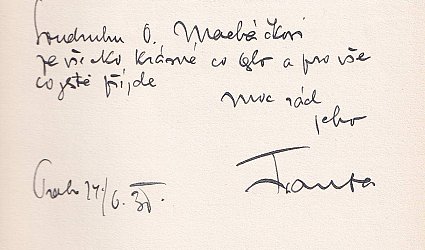 Soudruhu O. Macháčkovi
za všecko krásné co bylo a pro vše
co ještě příjde
moc rád
jeho
Franta
Praha 24/6. 35.